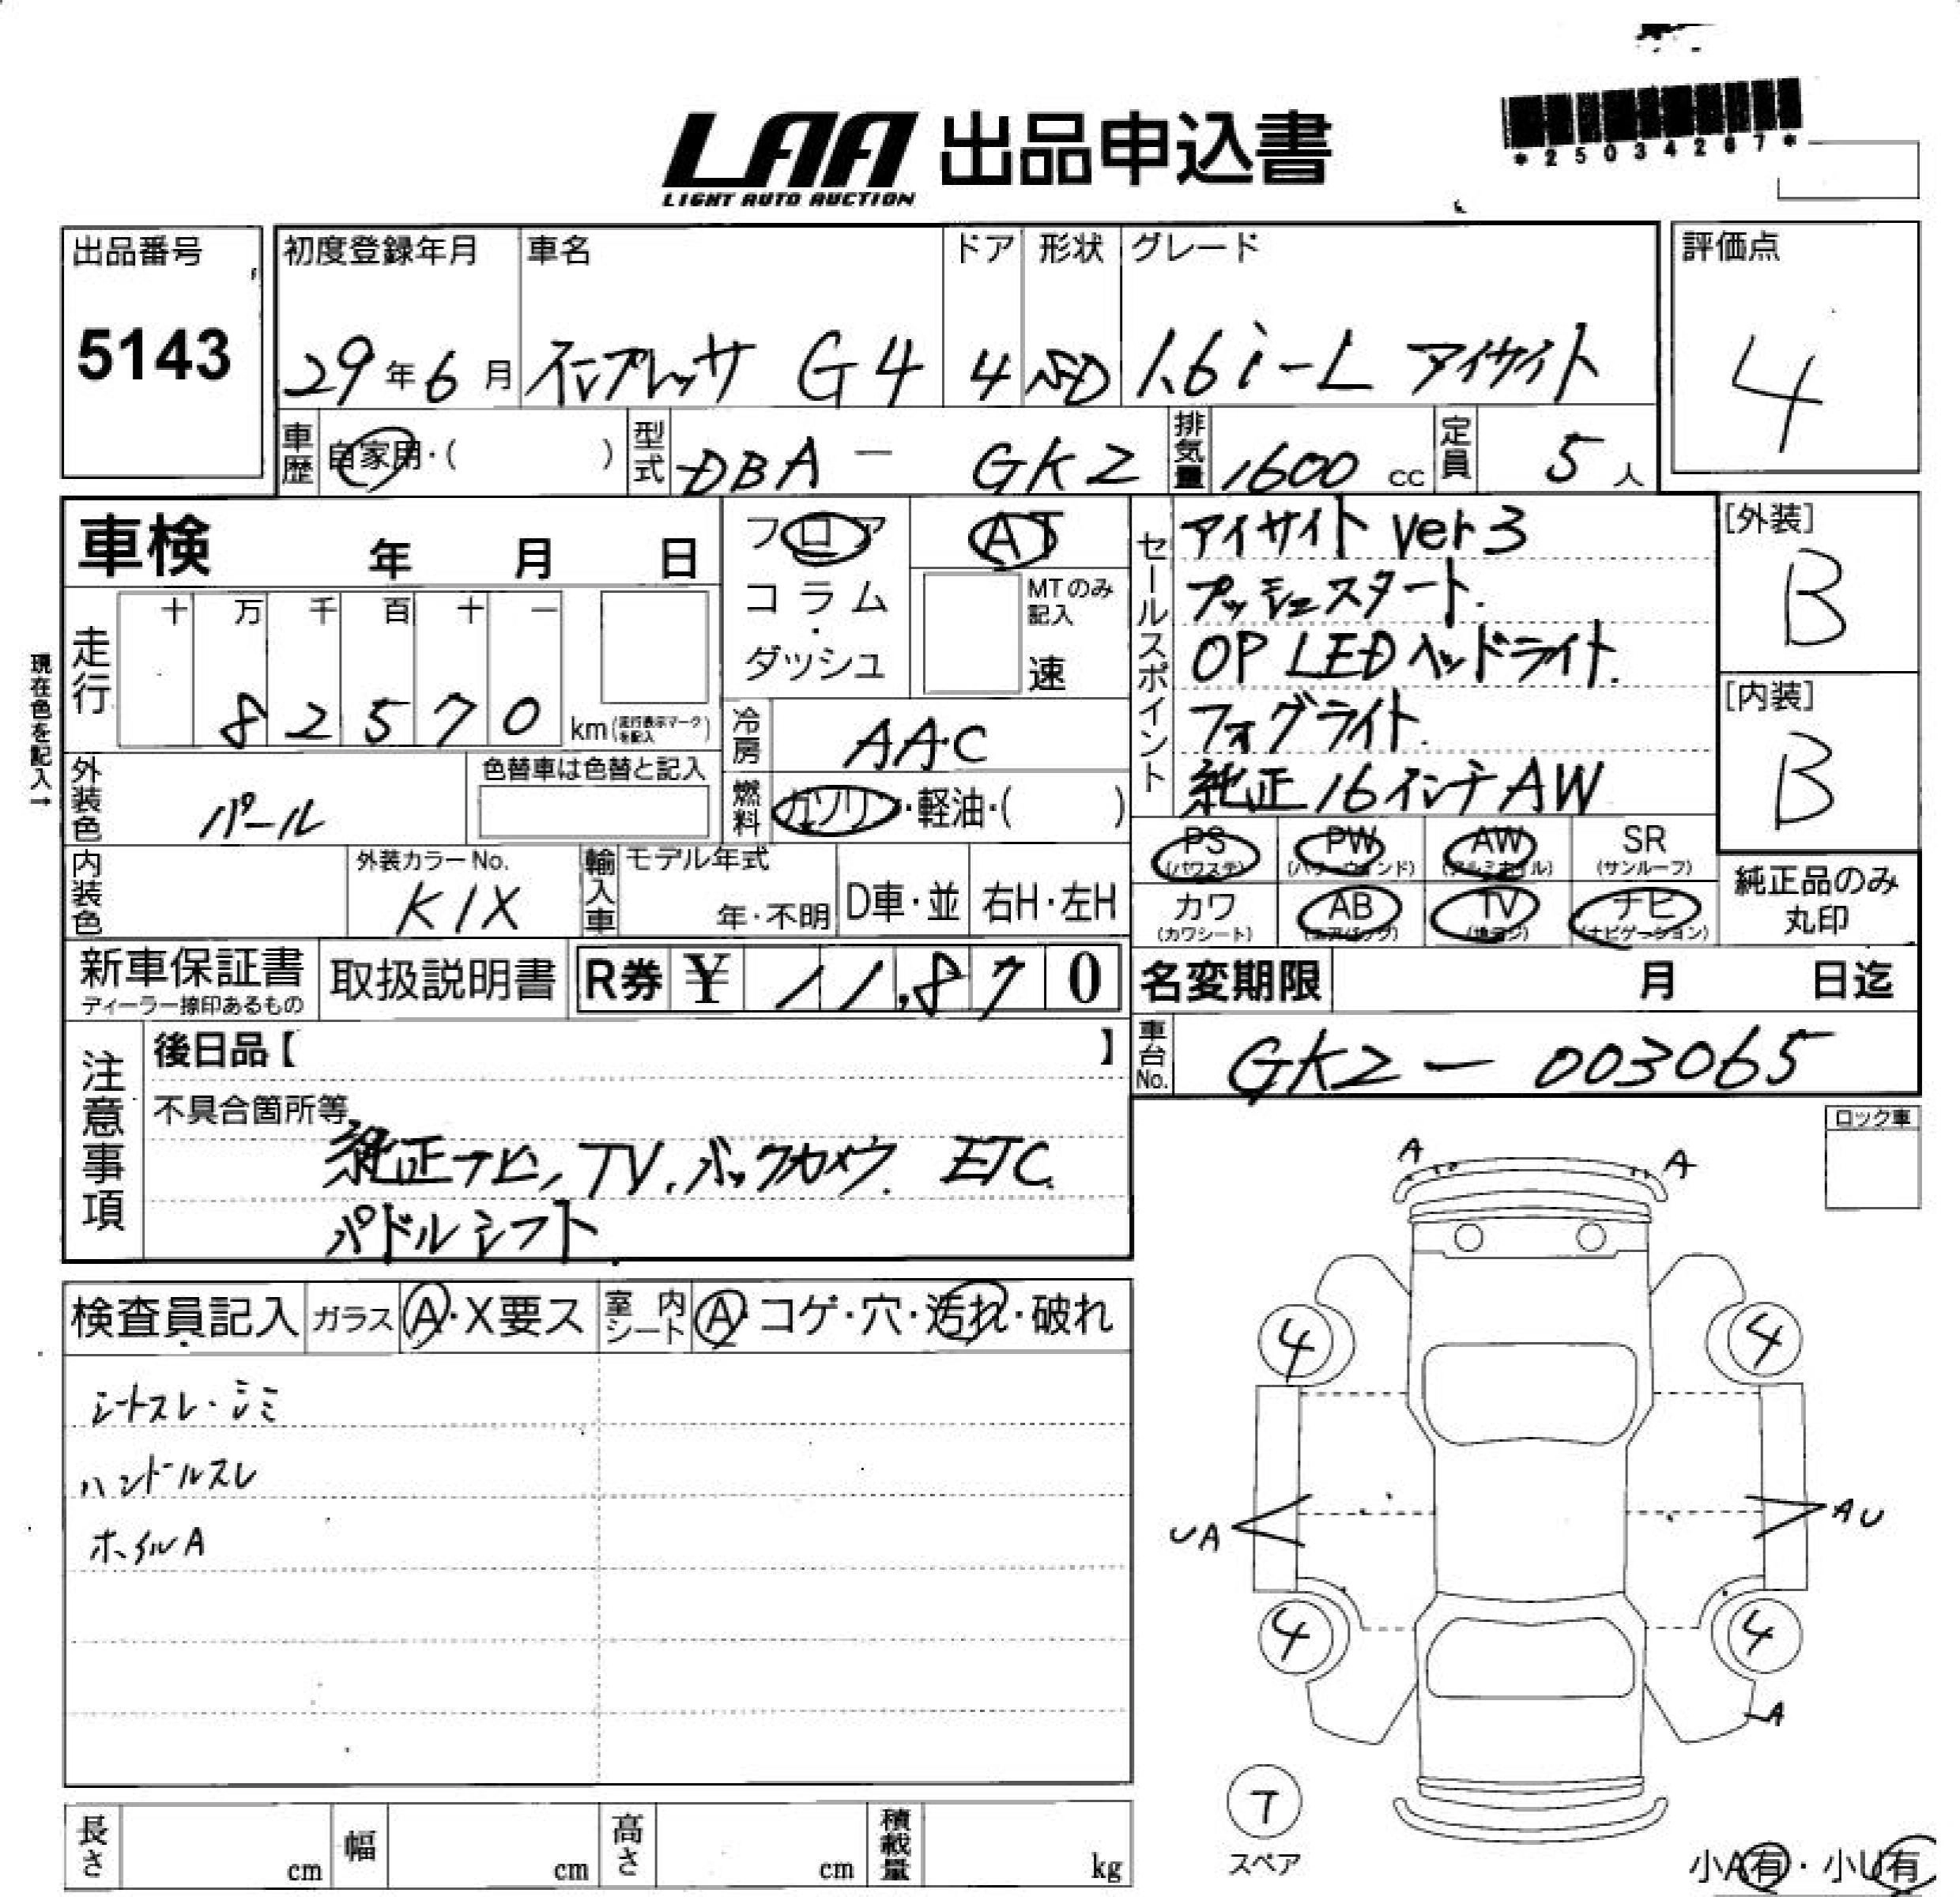 *25034287*
LAA 出品申込書
LIGHT AUTO AUCTION
出品番号
5143
初度登録年月
29年6月
車名
インプレッサ G4
ドア
4
形状
SD
グレード
1.6i-L アイサイト
評価点
4
車歴
自家用・( )
型式
DBA - GK2
排気量
1600 cc
定員
5人
車検 年 月 日
フロア
コラム
・
ダッシュ
AT
MTのみ
記入
速
セールスポイント
アイサイト ver3
プッシュスタート.
OP LEDヘッドライト.
フォグライト.
純正16インチAW
[外装]
B
[内装]
B
現在色を記入→
走行
十 万 千 百 十 一
8 2 5 7 0
km(走行表示マークを記入)
冷房
AAC
外装色
パール
色替車は色替と記入
燃料
ガソリン・軽油・( )
PS
(パワステ)
PW
(パワーウィンド)
AW
(アルミホイル)
SR
(サンルーフ)
カワ
(カワシート)
AB
(エアバッグ)
TV
(地デジ)
ナビ
(ナビゲーション)
純正品のみ
丸印
内装色
外装カラーNo.
K1X
輸入車
モデル年式
年・不明
D車・並
右H・左H
新車保証書
ディーラー捺印あるもの
取扱説明書
R券 ¥ 11,870
名変期限 月 日迄
車台No.
GK2-003065
注意事項
後日品【 】
不具合箇所等
純正ナビ, TV, バックカメラ. ETC.
パドルシフト
ロック車
A A
検査員記入
ガラス A・X要ス
室内シート A・コゲ・穴・汚れ・破れ
シートスレ・シミ
ハンドルスレ
ホイルA
4 4
UA AU
4 4
A
T
スペア
小A有・小U有
長さ cm
幅 cm
高さ cm
積載量 kg